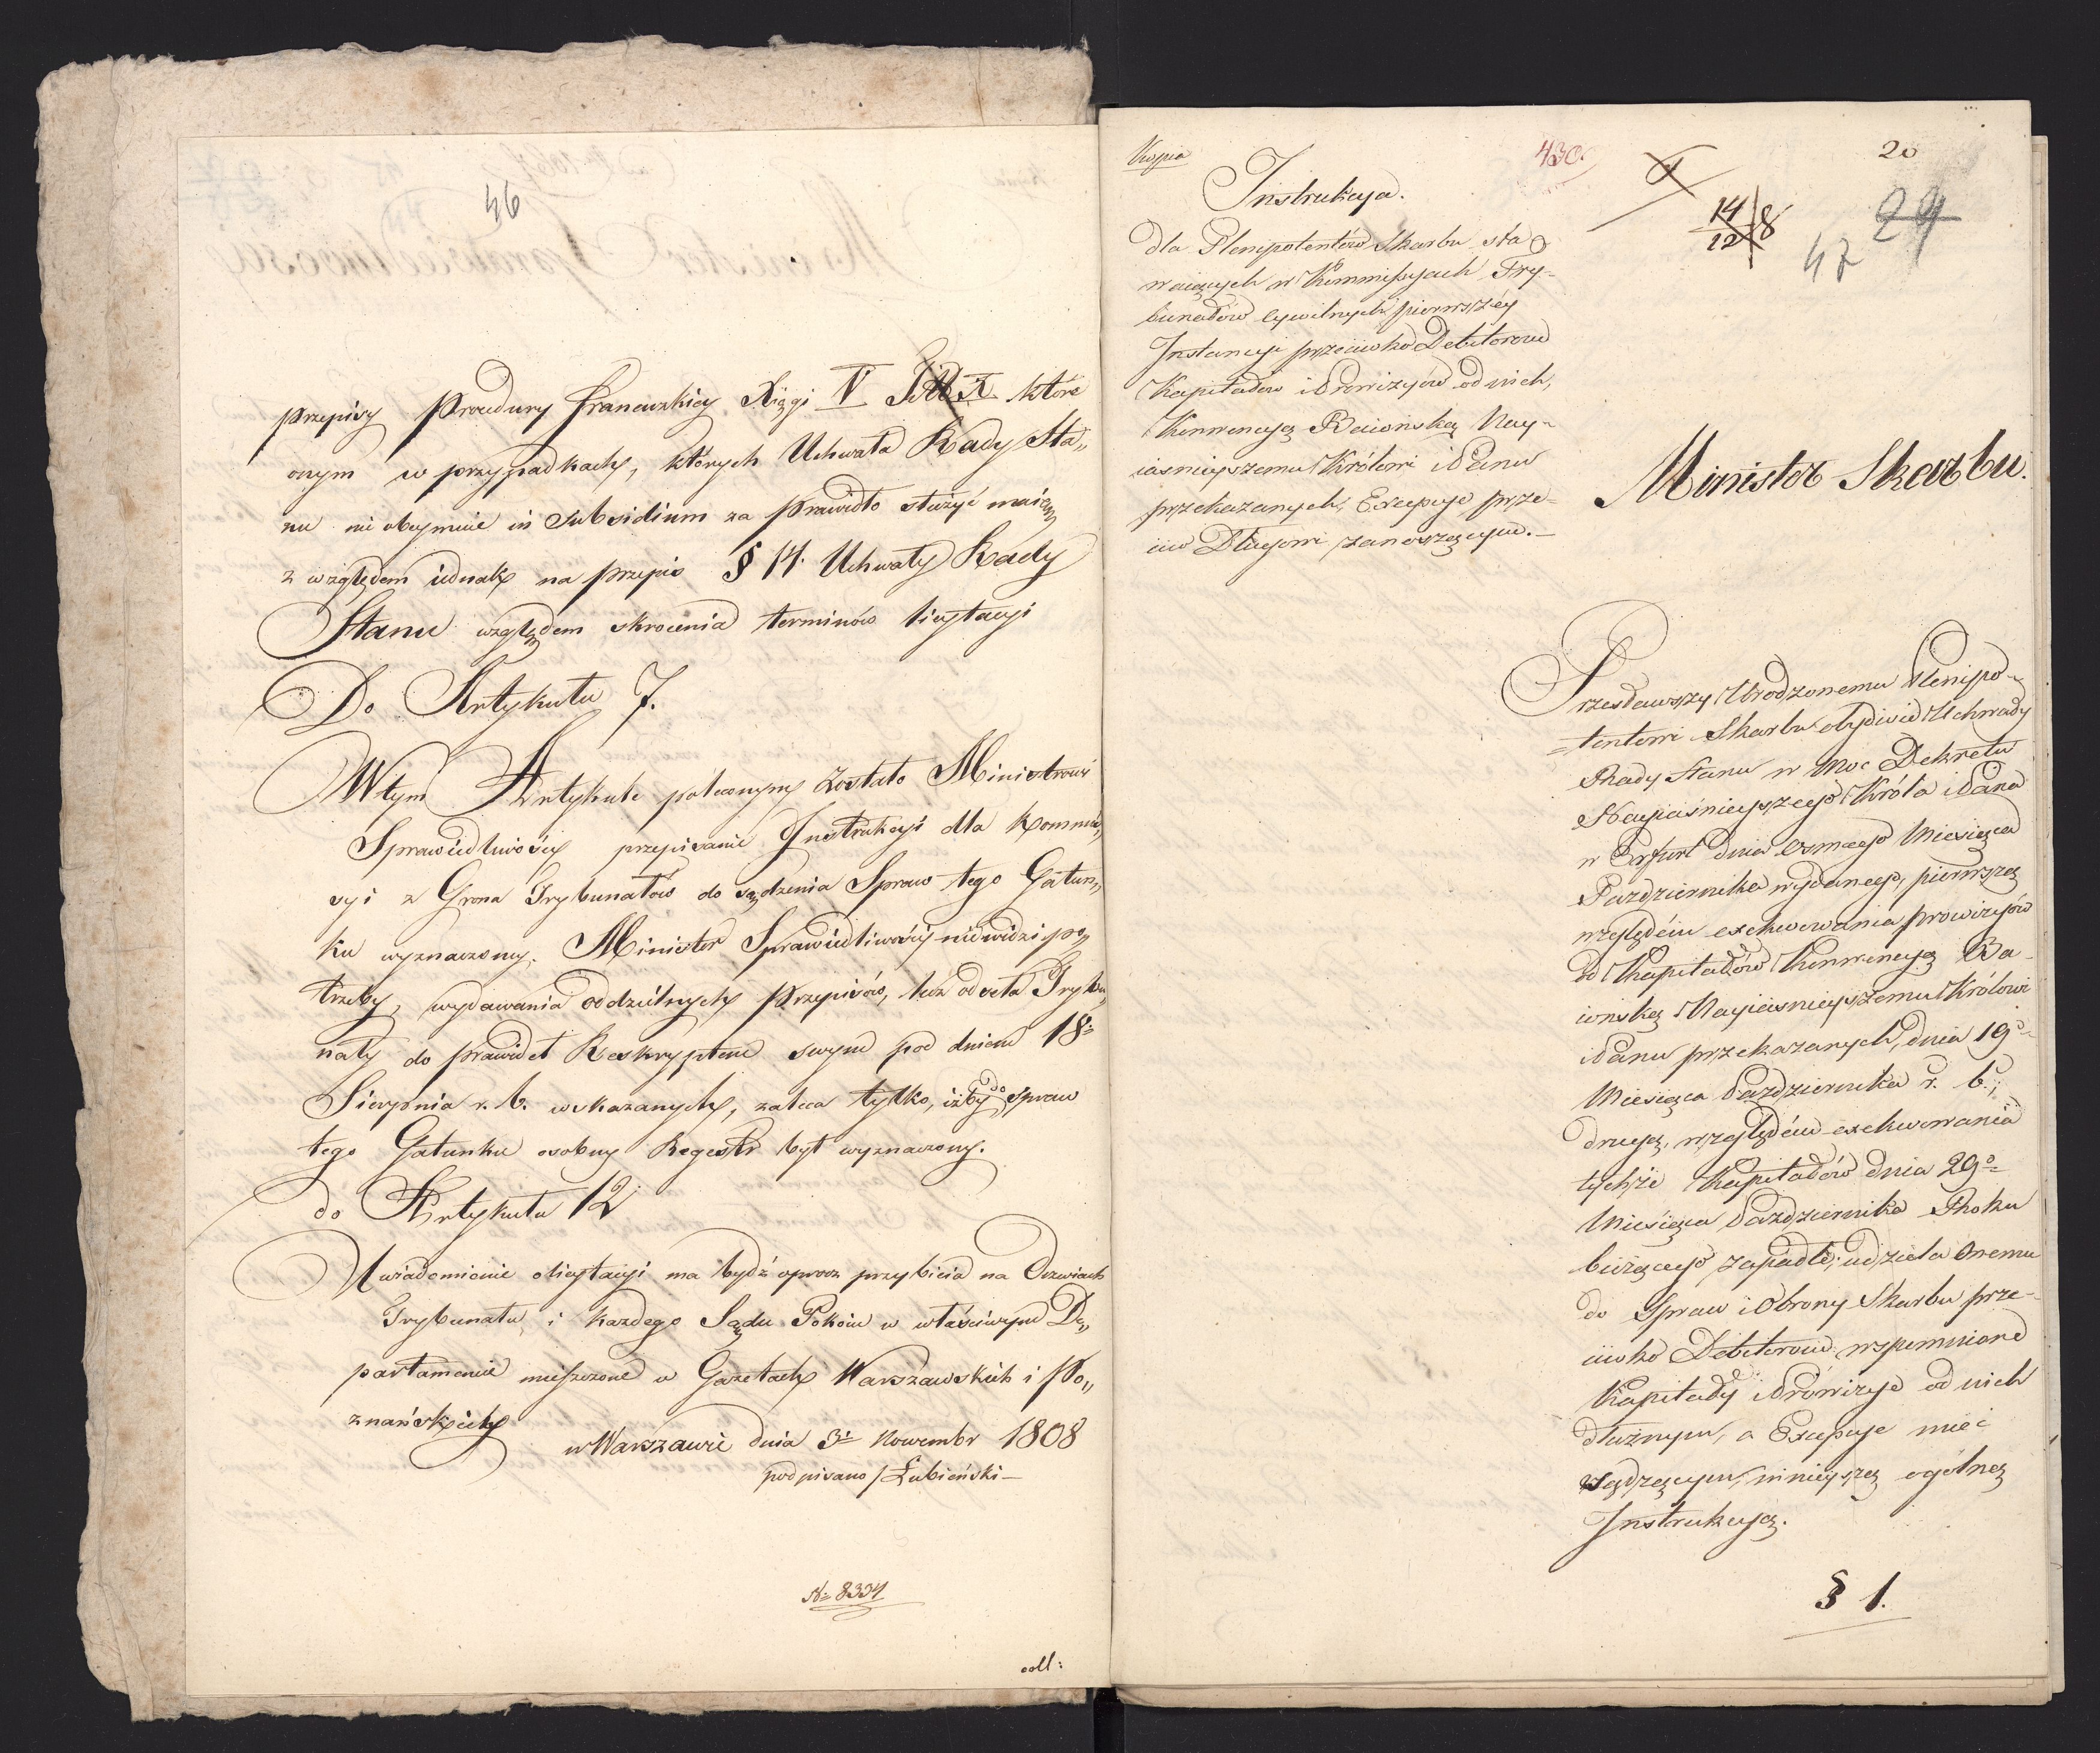 46
przepisy Procedury Francuzkiey Xięgi V Tit X które
onym w przypadkach, których Uchwała Rady Sta„
nu nie obeymuie in Subsidium za prawidło służyć maią
z względem iednak na przepis § 14. Uchwały Rady
Stanu względem skrocenia terminów licytacyi
Do Artykułu 7.
W tym Artykule poleconym zostało Ministrowi
Sprawiedliwości przepisanie Instrukcyi dla Kommis„
syi z Grona Trybunałów do sądzenia Spraw tego Gatun„
ku wyznaczoney. Minister Sprawiedliwości niewidzi po„
trzeby, wydawania oddzielnych Przepisów, lecz odseła Trybu„
nały do prawideł Reskryptem swym pod dniem 18.
Sierpnia r. b. wskazanych, zaleca tylko, iżby do Spraw
tego Gatunku osobny Regestr był wyznaczony.
do Artykułu 12
Uwiadomienie o licytacyi ma bydź oprocz przybicia na Drzwiach
Trybunału i każdego Sądu Pokoiu w właściwym De„
partamencie umieszczone w Gazetach Warszawskich i Po„
znańskich
w Warszawie dnia 3 Nowembr 1808
podpisano /Łubieński—
N 8334
coll:
Kopia
430.
20
14
12
8
29
47
Instrukcya.
dla Plenipotentów Skarbu sta
waiących w Kommissyach Try-
bunałów Cywilnych pierwszey
Instancyi przeciwko Debitorom
Kapitałów i Prowizyów od nich,
Konwencyą Baiońską Nay-
iasnieyszemu Królowi i Panu
przekazanych, Excepcye prze-
ciw Długowi zanoszącym.—
Minister Skarbu.
Przesławszy Urodzonemu Plenipo-
=tentowi Skarbu obydwie Uchwały
Rady Stanu w Moc Dekretu
Nayiaśnieyszego Króla i Pana
w Erfurt dnia osmego Miesiąca
Pazdziernika wydanego, pierwszą
względem exekwowania prowizyów
od Kapitałów Konwencyą Ba-
iońską Nayiasnieyszemu Królowi
i Panu przekazanych, dnia 19
Miesiąca Pazdziernika r. b.;
drugą, względem exekwowania
tychże Kapitałów dnia 29
Miesiąca Pazdziernika Roku
bieżącego zapadłe; udziela Onemu
do Spraw i Obrony Skarbu prze-
ciwko Debitorom wspomnione
Kapitały i Prowizye od nich
dłużnym, a Excepcye mieć
sądzącym, ninieyszą ogólną
Instrukcyą.
§ 1.